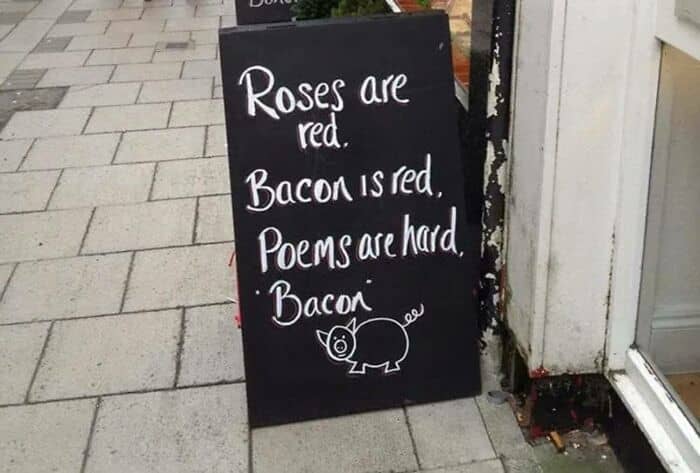 Roses are
red.
Bacon is red.
Poems are hard.
Bacon